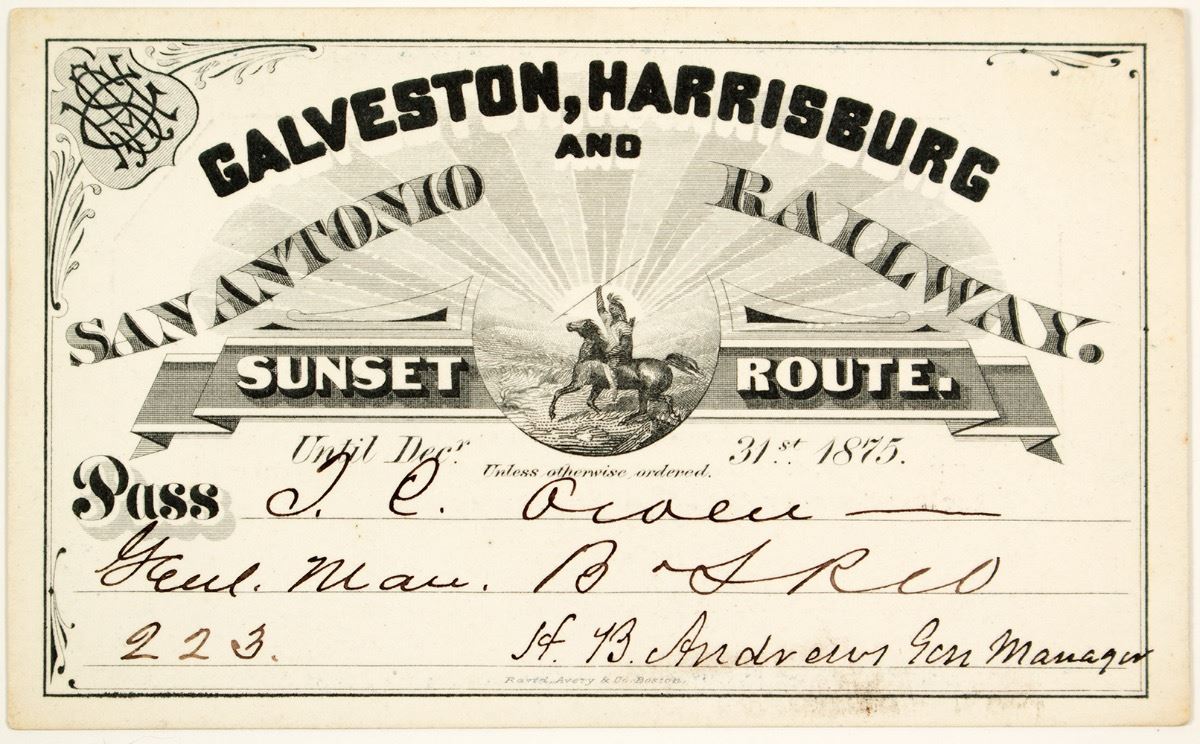 GALVESTON, HARRISBURG
AND
SAN ANTONIO RAILWAY.
SUNSET ROUTE.
Until Decr. 31st 1875.
Unless otherwise ordered.
Pass T. C. Owen
Genl. Man. B & S R R
223.
H. B. Andrews Gen Manager
Rand, Avery & Co. Boston.